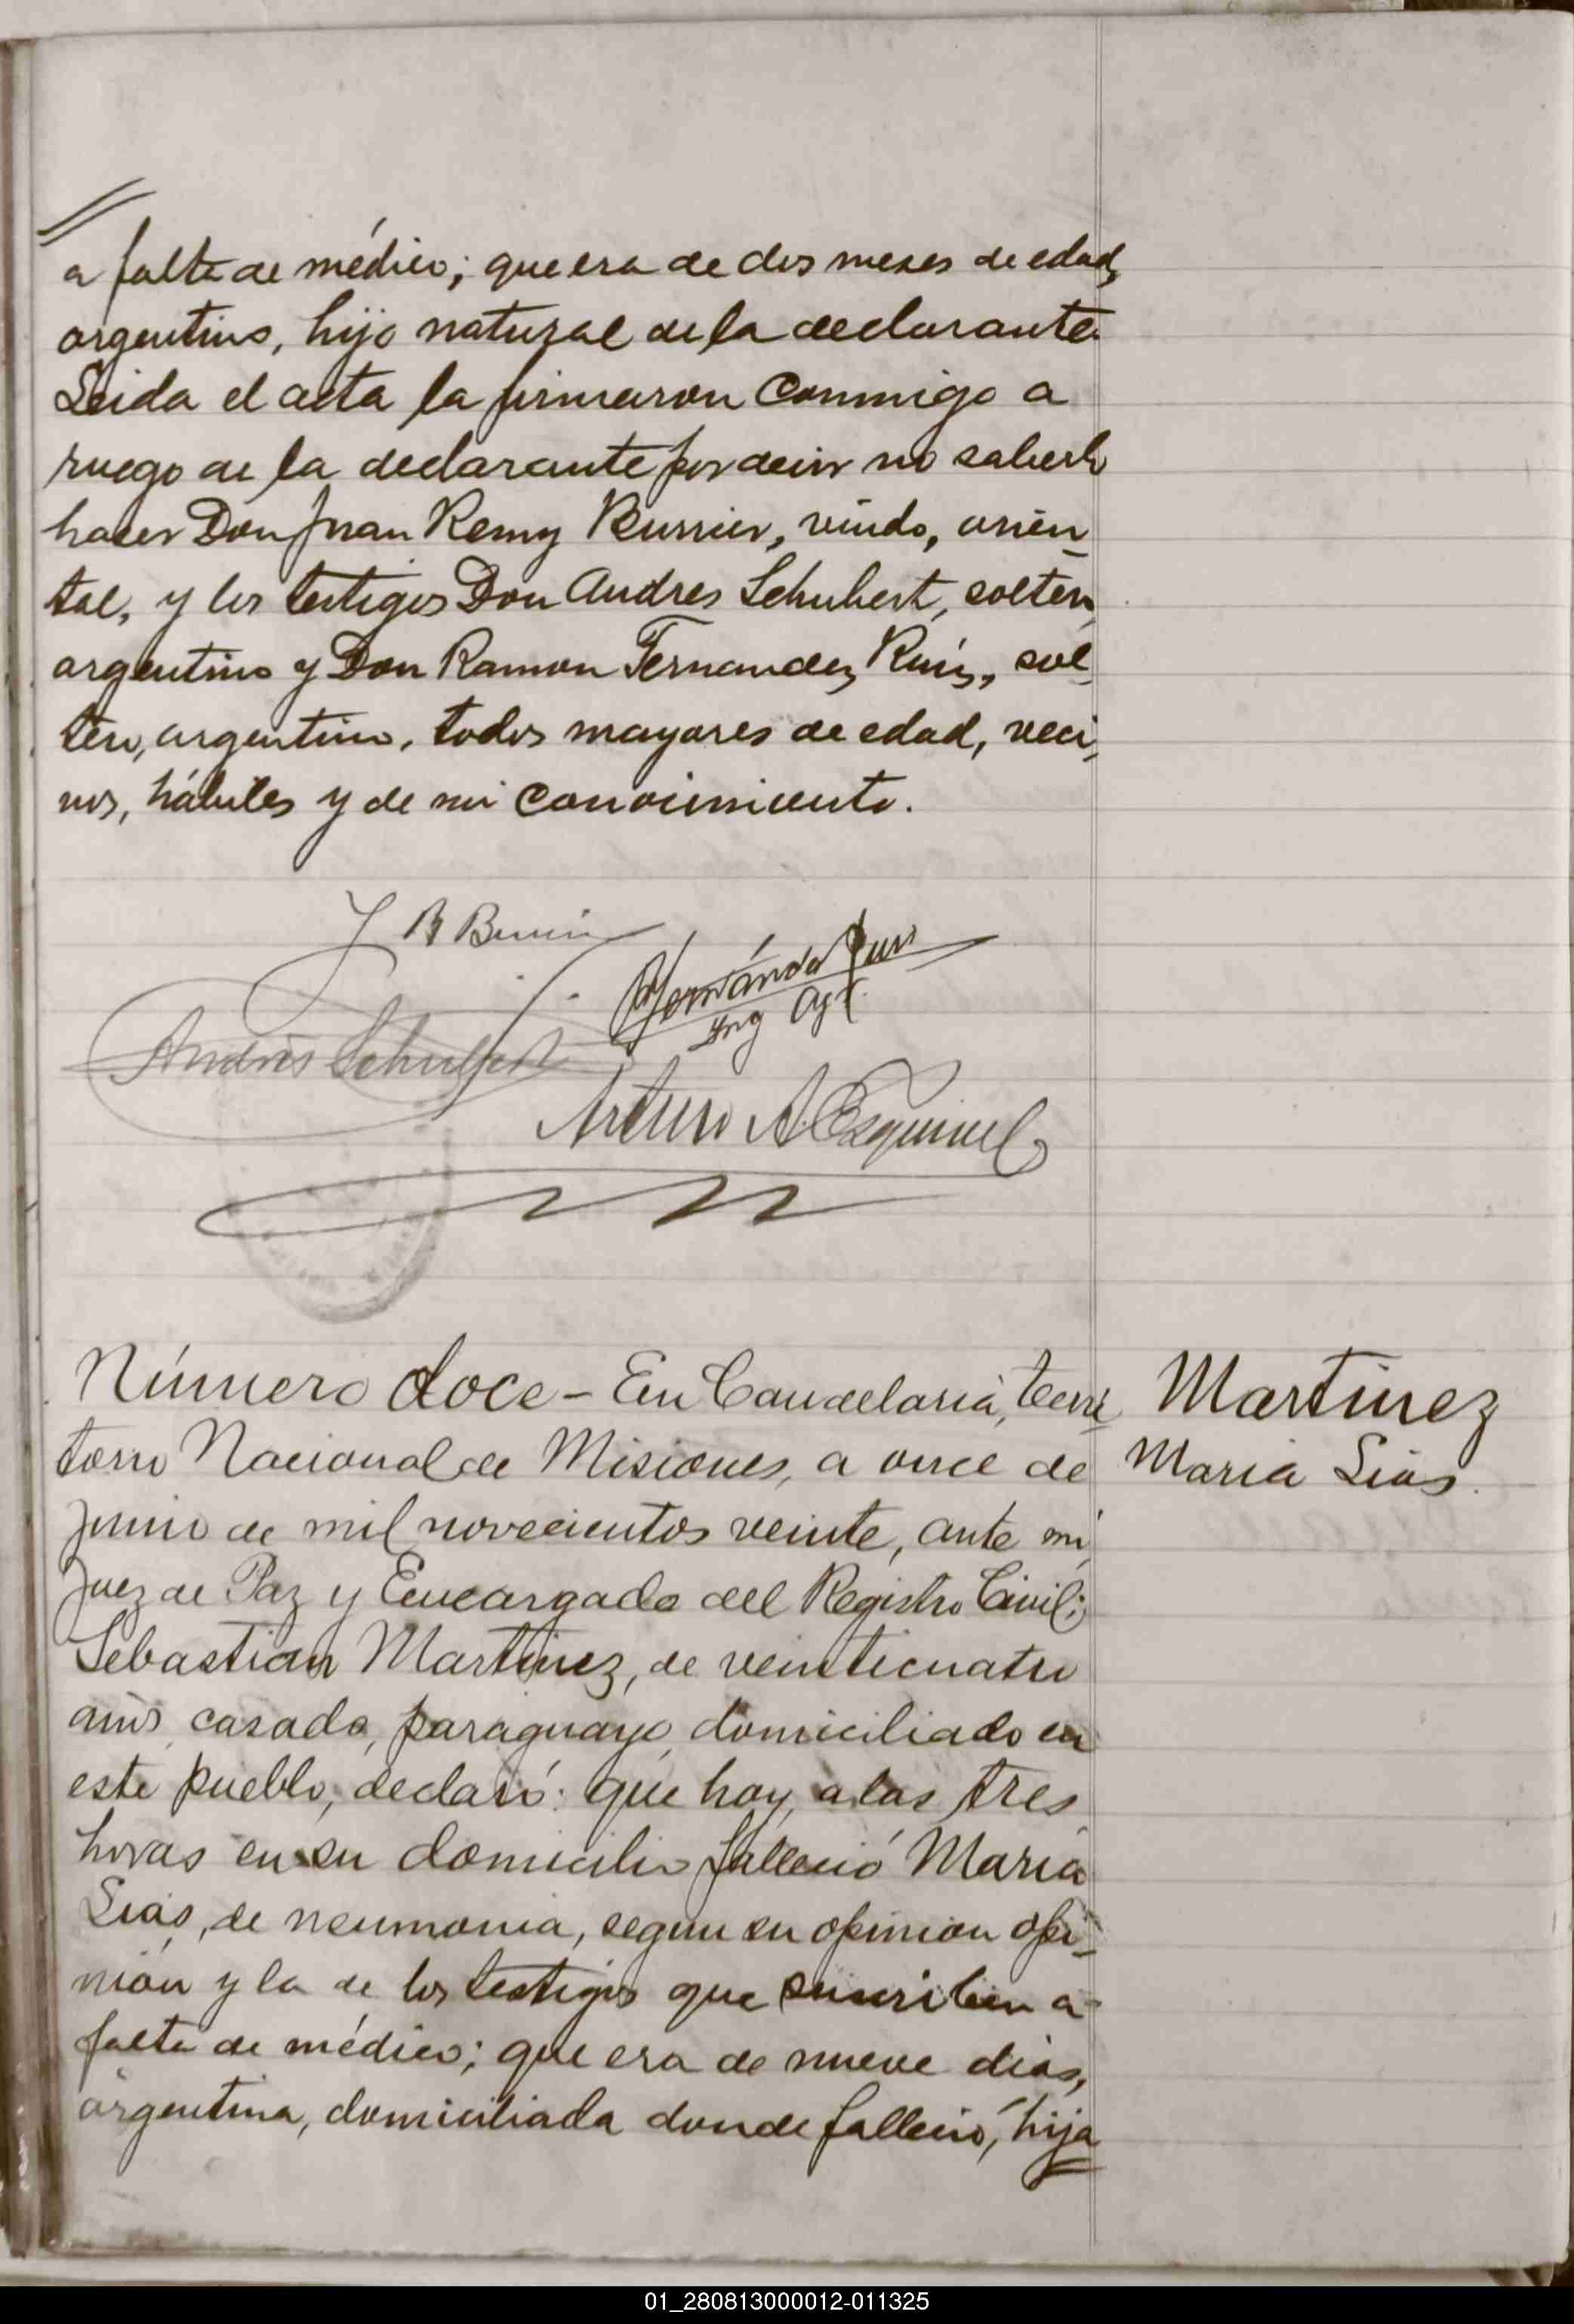 a falta de médico; que era de dos meses de edad,
argentino, hijo natural de la declarante
Leida el acta la firmaron conmigo a
ruego de la declarante por decir no saberlo
hacer Don Juan Remy Burrier, viudo, orien_
tal, y los testigos Don Andres Schubert, soltero,
argentino y Don Ramon Fernandez Ruiz, sol_
tero, argentino, todos mayores de edad, veci_
nos, hábiles y de mi conocimiento.
Ing Agr.
Andrés Schubert
Arturo A. Esquivel
Número doce - En Candelaria, terri_
Martinez
torio Nacional de Misiones, a once de
Maria Lias.
junio de mil novecientos veinte, ante mi
Juez de Paz y Encargado del Registro Civil;
Sebastian Martinez, de veinticuatro
años, casado, paraguayo, domiciliado en
este pueblo, declaró: que hoy, a las tres
horas en su domicilio falleció Maria
Lias, de neumonia, segun su opinion opi_
nión y la de los testigos que suscriben a
falta de médico; que era de nueve dias,
argentina, domiciliada donde falleció, hija
01_280813000012-011325